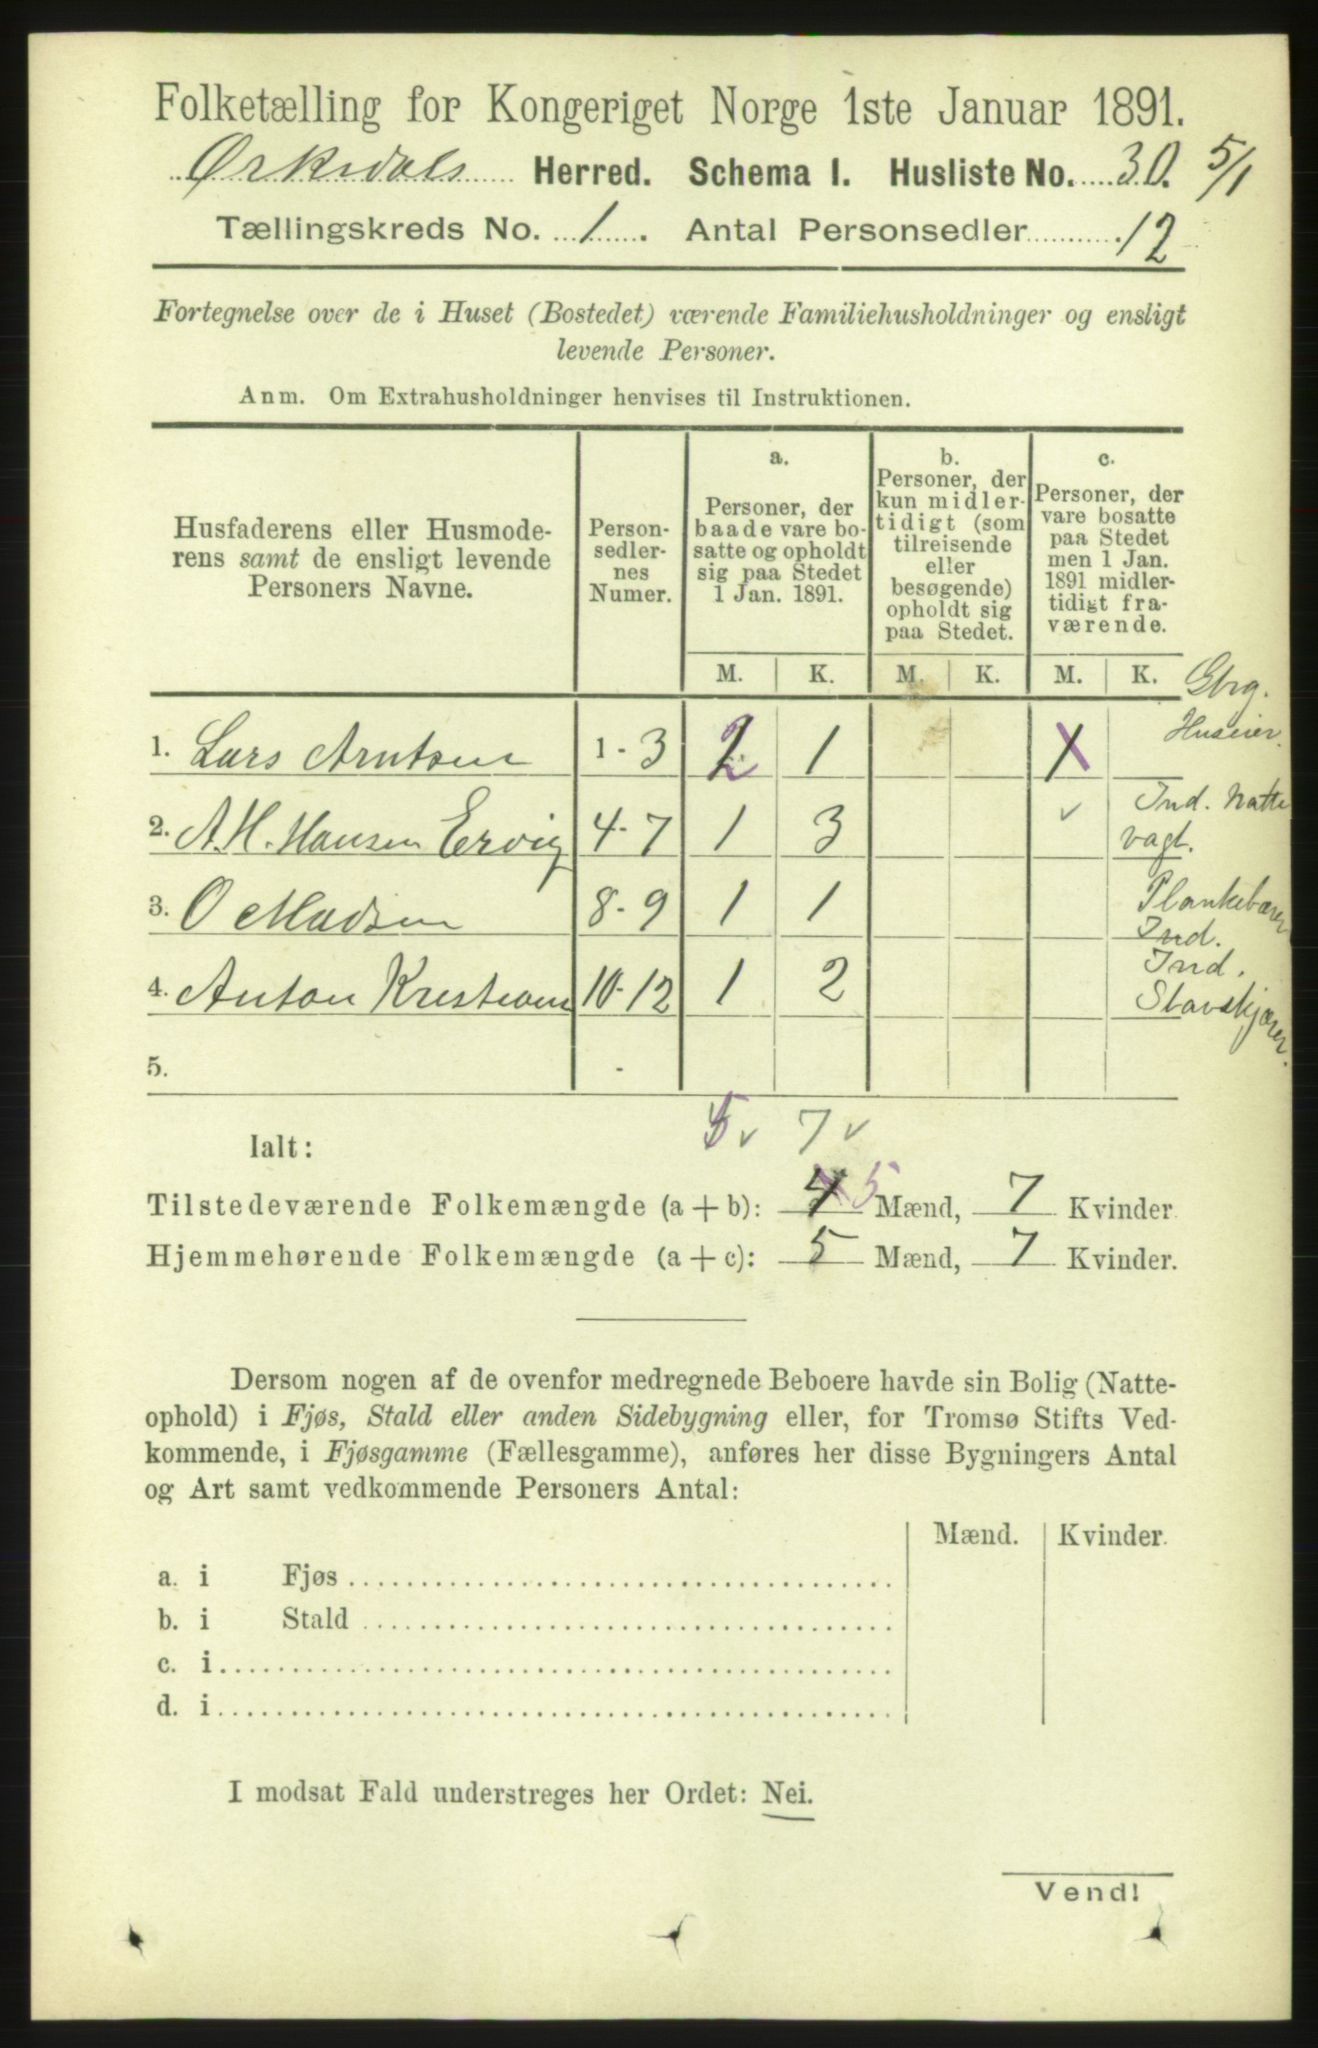 Folketælling for Kongeriget Norge 1ste Januar 1891.
Ørkedals Herred. Schema I. Husliste No. 30. 5/1
Tællingskreds No. 1. Antal Personsedler 12
Fortegnelse over de i Huset (Bostedet) værende Familiehusholdninger og ensligt
levende Personer.
Anm. Om Extrahusholdninger henvises til Instruktionen.
Husfaderens eller Husmode-
rens samt de ensligt levende
Personers Navne.
Person-
sedler-
nes
Numer.
a.
Personer, der
baade vare bo-
satte og opholdt
sig paa Stedet
1 Jan. 1891.
b.
Personer, der
kun midler-
tidigt (som
tilreisende
eller
besøgende)
opholdt sig
paa Stedet.
c.
Personer, der
vare bosatte
paa Stedet
men 1 Jan.
1891 midler-
tidigt fra-
værende.
M. K. M. K. M. K.
Gbrg.
Huseier.
1. Lars Arntsen 1-3 2 1 X
Ind. Natte
vagt.
2. A. H. Hansen Ervig 4-7 1 3 ✓
Plankebærer
Ind.
3. O Madsen 8-9 1 1
Ind.
Stavskjærer.
4. Anton Kristians 10-12 1 2
5. -
Ialt: 5 ✓ 7 ✓
Tilstedeværende Folkemængde (a + b): 4 5 Mænd, 7 Kvinder
Hjemmehørende Folkemængde (a + c): 5 Mænd, 7 Kvinder.
Dersom nogen af de ovenfor medregnede Beboere havde sin Bolig (Natte-
ophold) i Fjøs, Stald eller anden Sidebygning eller, for Tromsø Stifts Ved-
kommende, i Fjøsgamme (Fællesgamme), anføres her disse Bygningers Antal
og Art samt vedkommende Personers Antal:
Mænd. Kvinder.
a. i Fjøs
b. i Stald
c. i
d. i
I modsat Fald understreges her Ordet: Nei.
Vend!